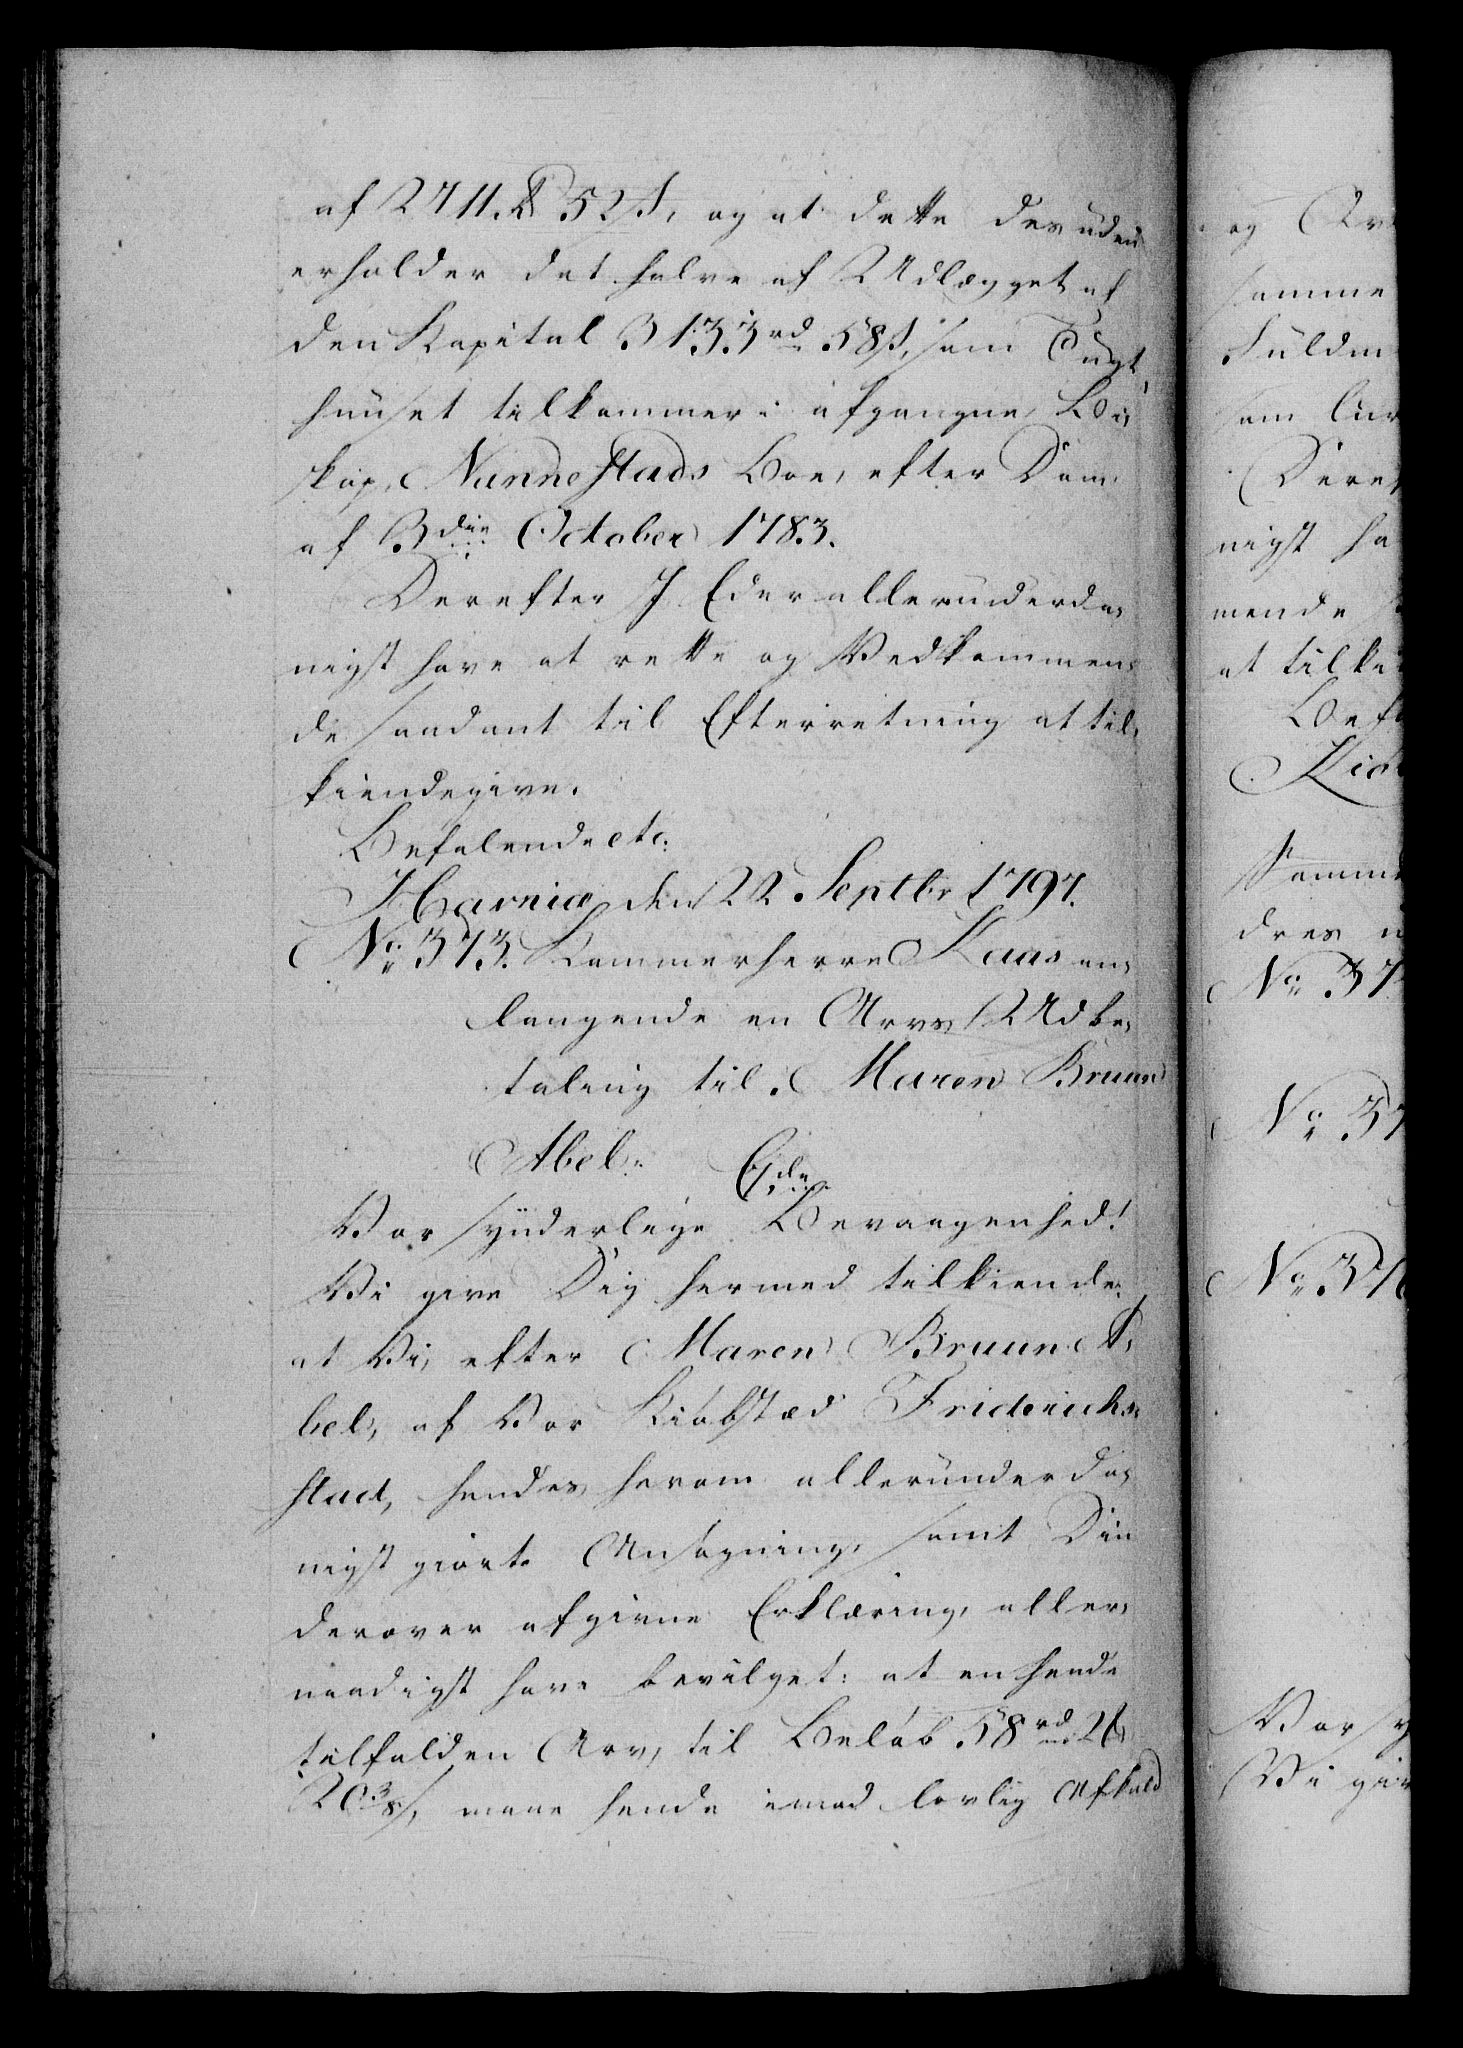 af 2711. Rd 52 s, og at dette desuden
erholder det halve af Udlægget af
den Kapital 3133 rd 58 s, som Tugt,
huuset tilkommer i afgangne Bi,
skop, Nannestads Boe, efter Dom
af 3die October 1783.
Derefter I Eder allerunderda,
nigst have at rette og Vedkommen,
de saadant til Efterretning at til,
kiendegive.
Befalende etc:
Havniæ den 22 Septbr 1797.
No 373. Kammerherre Kaas an,
langende en Arvs Udbe,
taling til Maren Bruun
Abel.
C 7de
Vor synderlige Bevaagenhed!
Vi give Dig hermed tilkiende:
at Vi, efter Maren Bruun A,
bel, af Vor Kiøbstæd Friderichs,
stad, hendes herom allerunderda,
nigst giorte Ansøgning, samt Din
derover afgivne Erklæring, aller,
naadigst have bevilget: at en hende
tilfalden Arv, til Beløb 58 rd 2
20 3/8 s, maae hende imod lovlig Afkald
og Arv
samme
Fuldm
som
nigst ha
mende
at tilki
Befa
Samme
dres
No 37
No 37
No 376
Vor sy
Vi giv